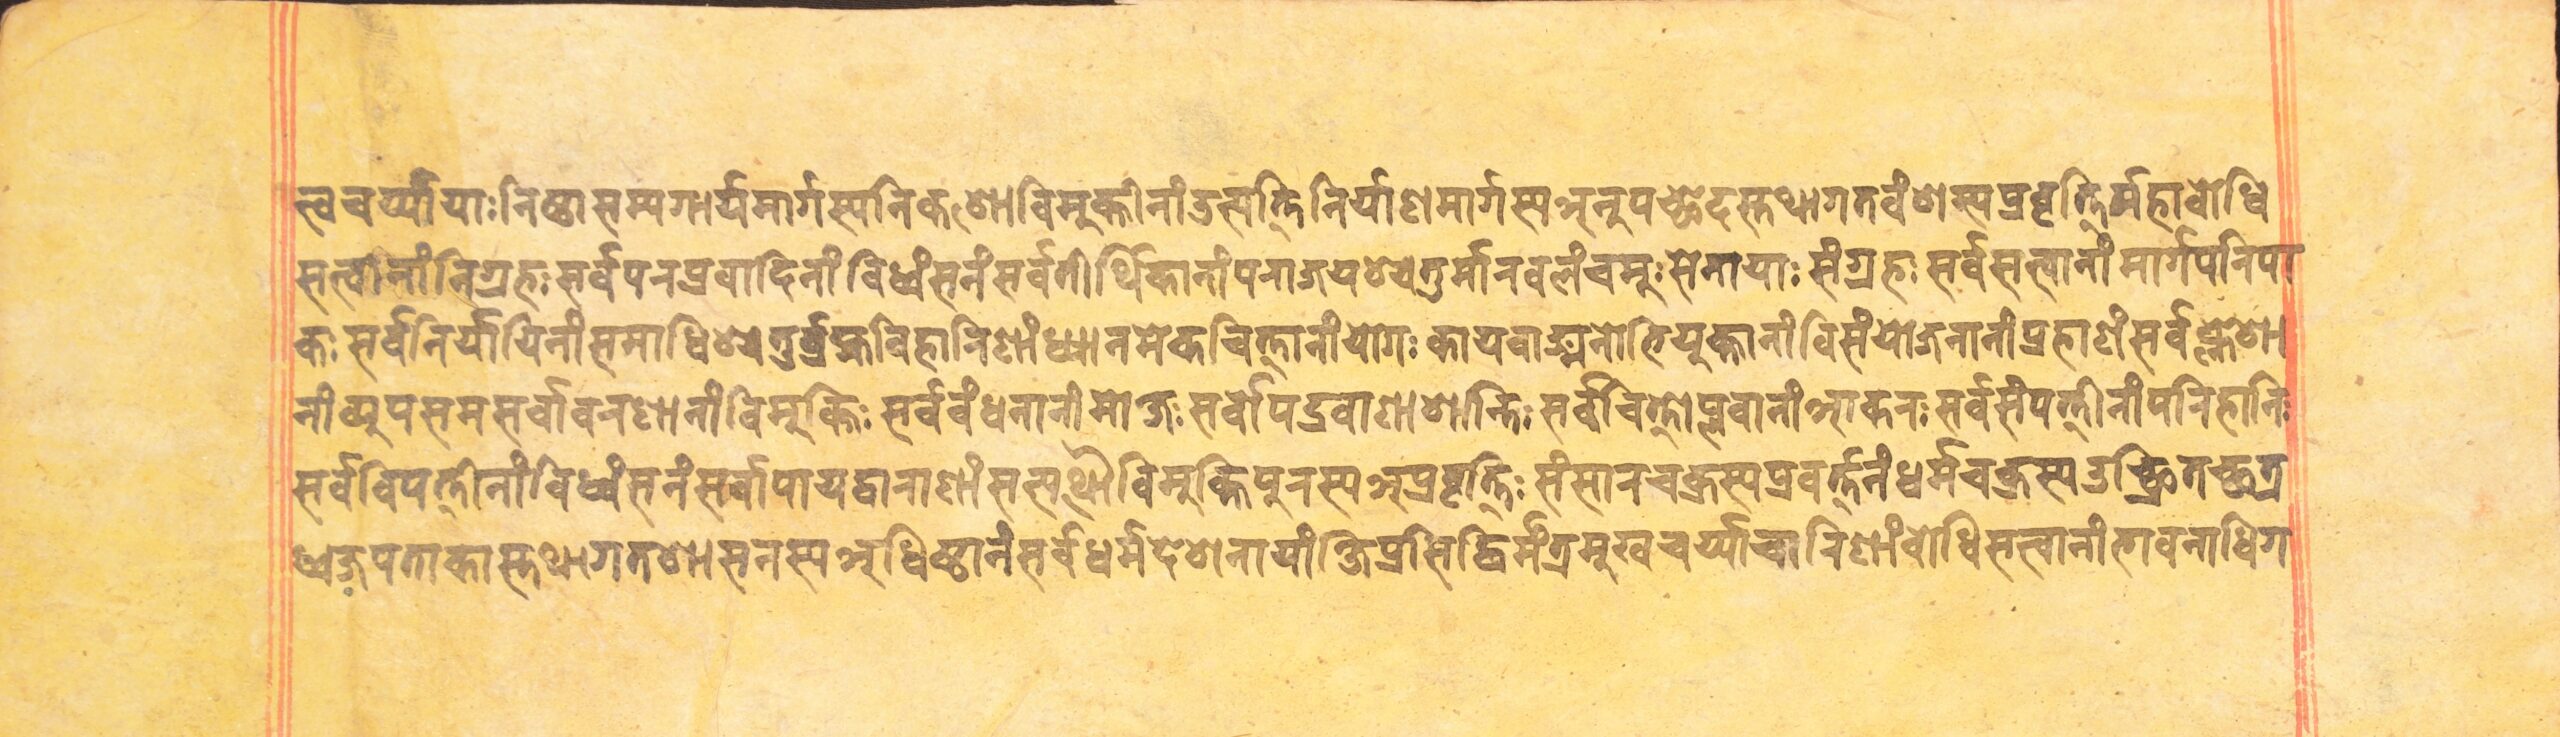 त्त्वचर्य्यायाः निष्ठासम्यगार्यमार्गस्यनिकशोविमुक्तीनांउत्पत्तिनिर्याणमार्गस्यअनुपच्छेदस्तथागतवंशस्यप्रवृत्तिर्महाबोधि
सत्त्वानांनिग्रहः सर्वपरप्रवादिनांविध्वंसनंसर्वतीर्थिकानांपराजयश्चतुर्मारबलंचमुः सेनायाः संग्रहः सर्वसत्त्वानांमार्गपरिपा
कः सर्वनिर्यायिनांसमाधिश्चतुर्ब्रह्मविहारिणांध्यानमेकचित्तानांयोगः कायवाङ्मनोभियुक्तानांविसंयोजनानांप्रहाणंसर्वक्लेशा
नांव्युपसमसर्वावरणानांविमुक्तिः सर्वबंधनानांमोक्षः सर्वोपद्रवाणाशान्तिः सर्वचित्तोप्लवानांआकरः सर्वसंपत्तीनांपरिहानिः
सर्वविपत्तीनांविध्वंसनंसर्वापायद्वाराणांसत्पथौविमुक्तिपुरस्यअप्रवृत्तिः संसारचक्रस्यप्रवर्त्तनंधर्मचक्रस्यउच्छ्रितच्छत्र
ध्वजपताकास्तथागतशासनस्यअधिष्ठानंसर्वधर्मदेशनायांक्षिप्रसिद्धिर्मंत्रमुखचर्य्याचारिणांबोधिसत्त्वानांभावनाधिग